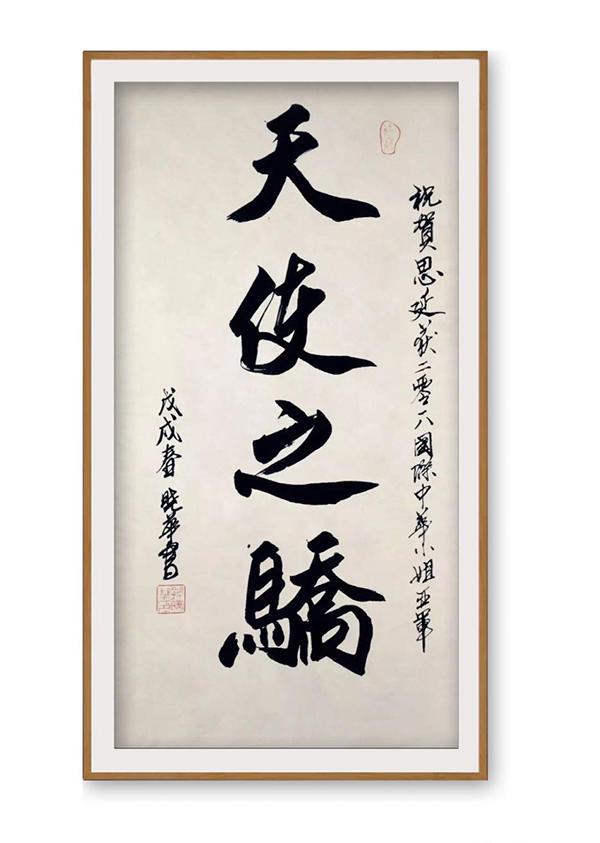 祝賀思延获二零一八國際中華小姐亞軍
天使之驕
戊戌春 晓華書